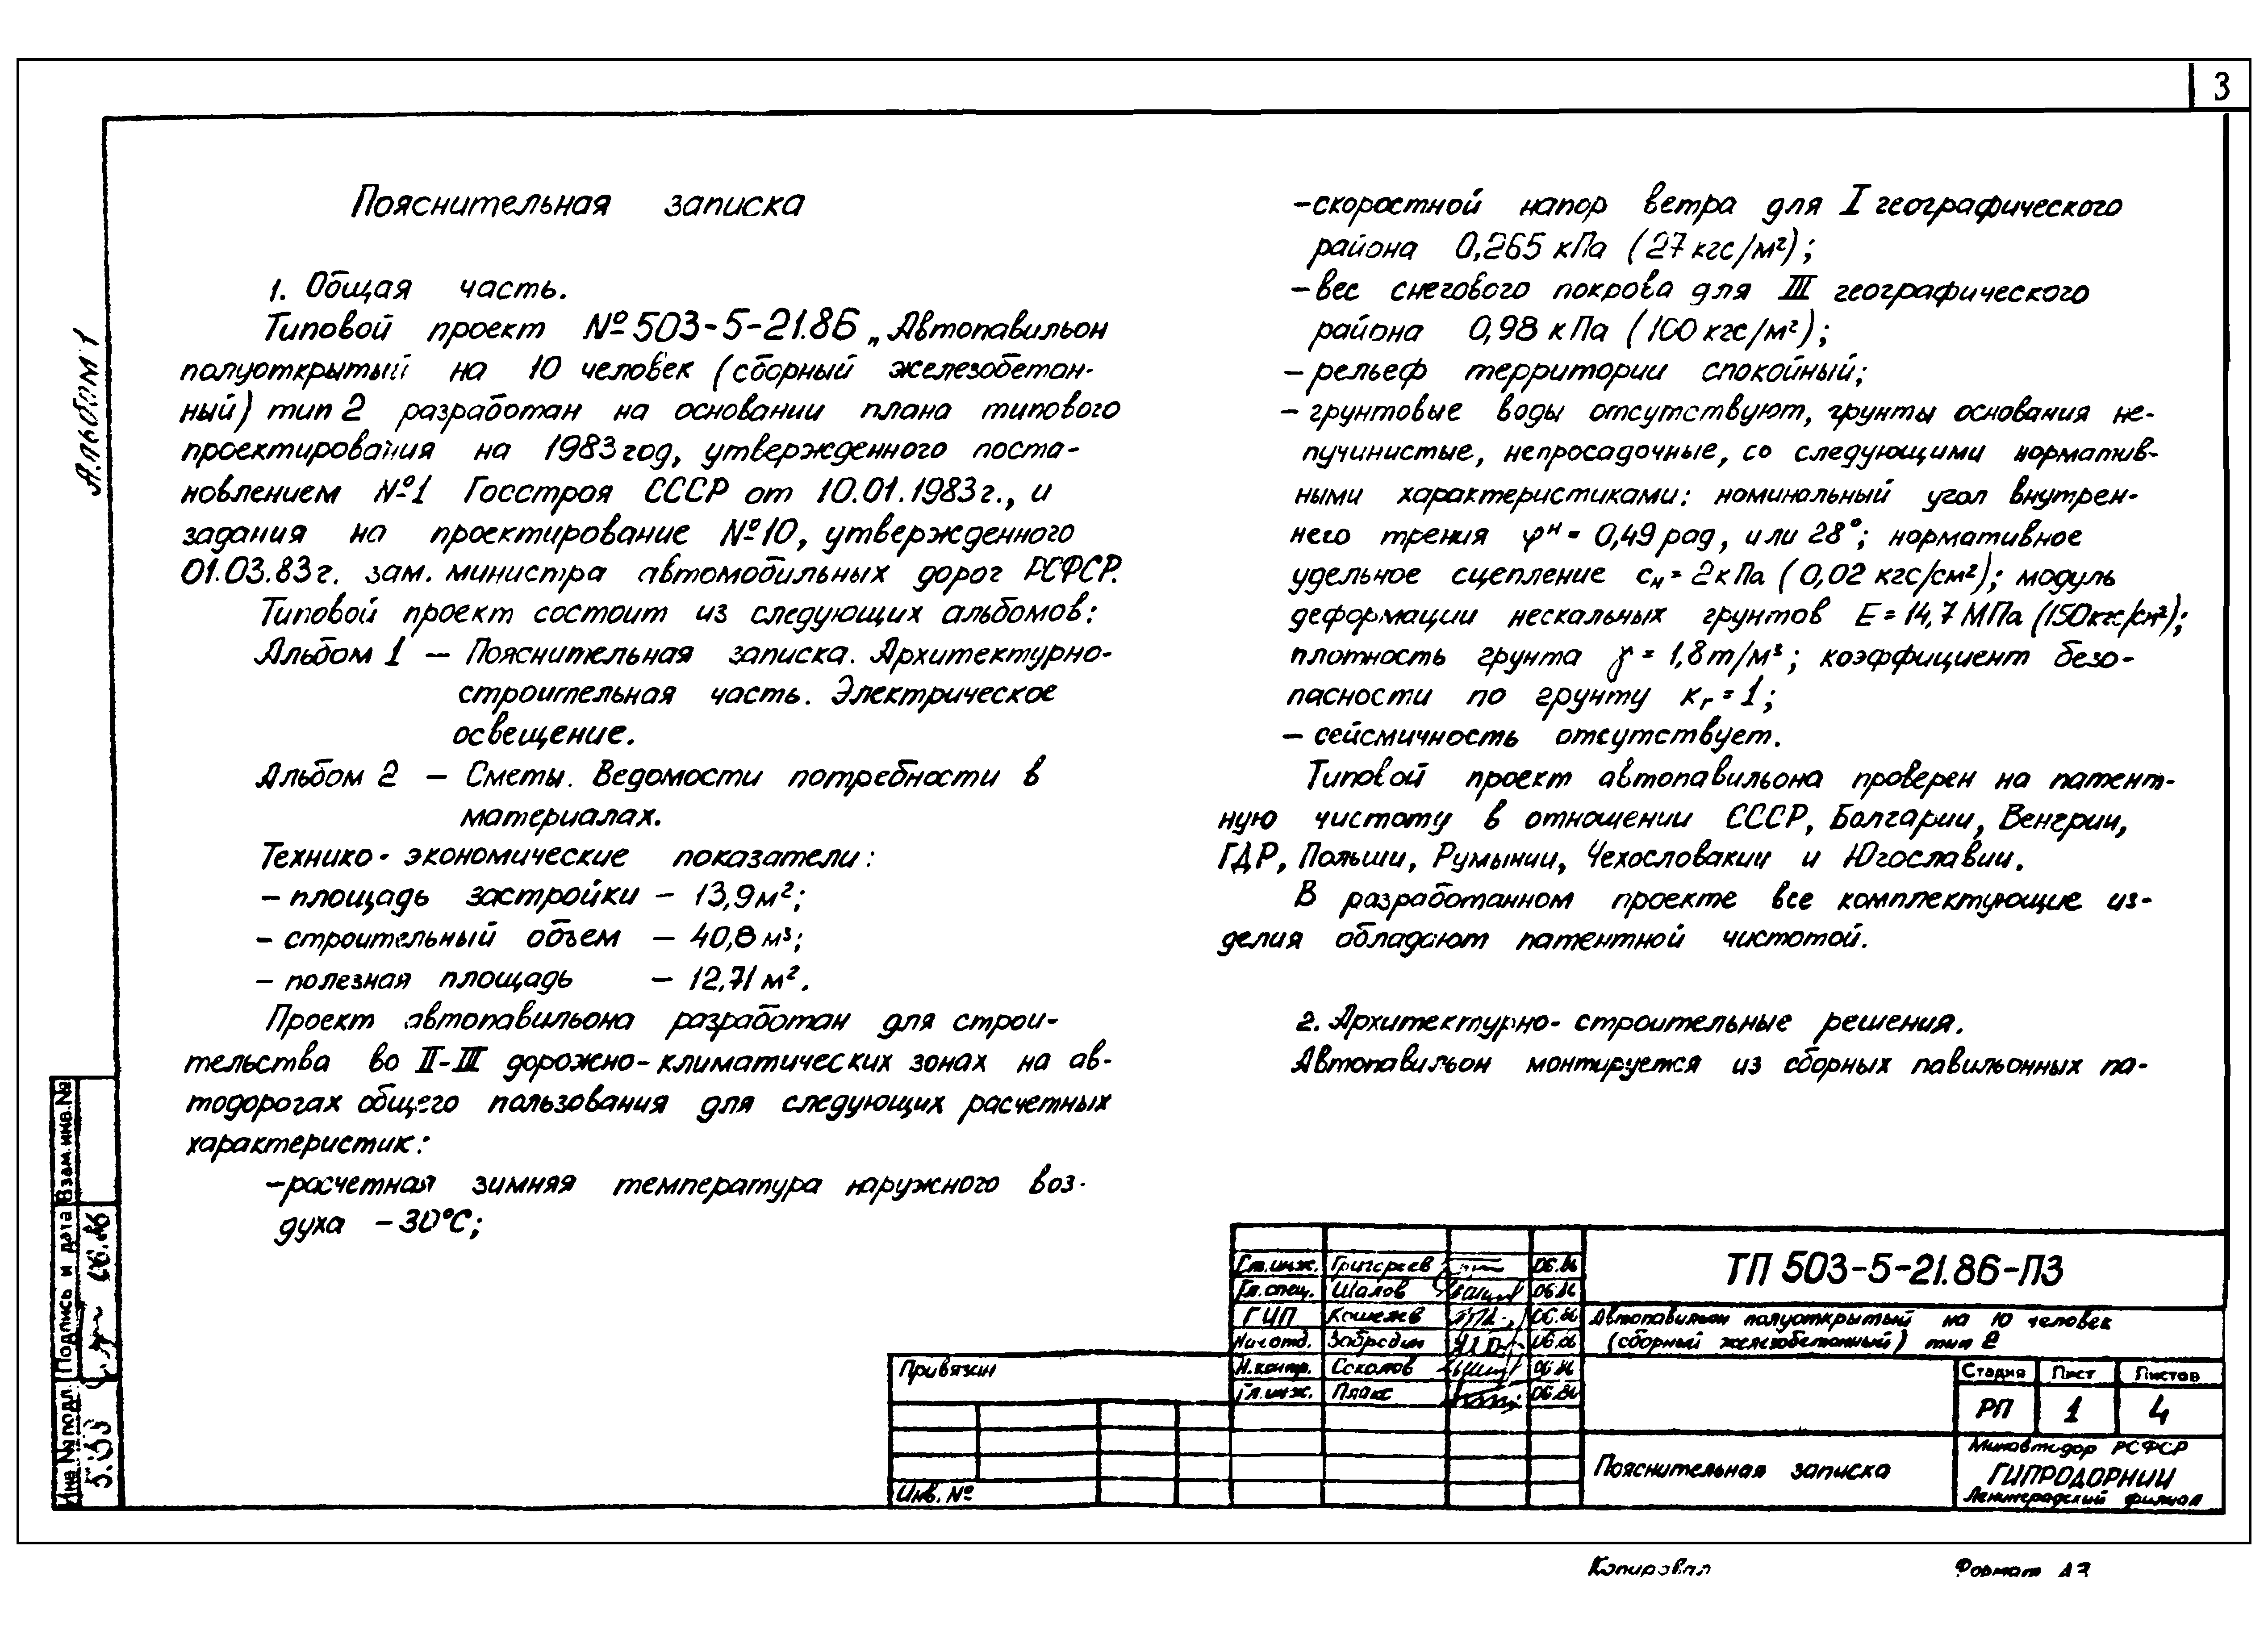 3
Альбом 1
Пояснительная записка
1. Общая часть.
Типовой проект №503-5-21.86 „Автопавильон
полуоткрытый на 10 человек (сборный железобетон-
ный) тип 2 разработан на основании плана типового
проектирования на 1983 год, утвержденного поста-
новлением №1 Госстроя СССР от 10.01.1983г., и
задания на проектирование №10, утвержденного
01.03.83г. зам. министра автомобильных дорог РСФСР.
Типовой проект состоит из следующих альбомов:
Альбом 1 – Пояснительная записка. Архитектурно-
строительная часть. Электрическое
освещение.
Альбом 2 – Сметы. Ведомости потребности в
материалах.
Технико-экономические показатели:
– площадь застройки – 13,9м²;
– строительный объем – 40,8м³;
– полезная площадь – 12,71м².
Проект автопавильона разработан для строи-
тельства во II-III дорожно-климатических зонах на ав-
тодорогах общего пользования для следующих расчетных
характеристик:
–расчетная зимняя температура наружного воз-
духа –30°С;
–скоростной напор ветра для I географического
района 0,265 кПа (27кгс/м²);
–вес снегового покрова для III географического
района 0,98 кПа (100кгс/м²);
– рельеф территории спокойный;
– грунтовые воды отсутствуют, грунты основания не-
пучинистые, непросадочные, со следующими норматив-
ными характеристиками: номинальный угол внутрен-
него трения φᴴ= 0,49рад, или 28°; нормативное
удельное сцепление cн=2кПа (0,02 кгс/см²); модуль
деформации нескальных грунтов E=14,7МПа (150кгс/см²);
плотность грунта γ=1,8т/м³; коэффициент безо-
пасности по грунту кг=1;
– сейсмичность отсутствует.
Типовой проект автопавильона проверен на патент-
ную чистоту в отношении СССР, Болгарии, Венгрии,
ГДР, Польши, Румынии, Чехословакии и Югославии.
В разработанном проекте все комплектующие из-
делия обладают патентной чистотой.
2. Архитектурно-строительные решения.
Автопавильон монтируется из сборных павильонных па-
Взам. инв.№
Подпись и дата 06.86
Инв № подл.
Привязан
Инв. №
Ст.инж. Григорьев 06.86
Гл.спец. Шалов 06.86
ГИП Кошелев 06.86
Нач.отд. Забродин 06.86
Н.контр. Соколов 06.86
Гл.инж. Плакс 06.86
ТП 503-5-21.86-ПЗ
Автопавильон полуоткрытый на 10 человек
(сборный железобетонный) тип 2
Стадия Лист Листов
РП 1 4
Пояснительная записка
Минавтодор РСФСР
ГИПРОДОРНИИ
Ленинградский филиал
Копировал Формат А3